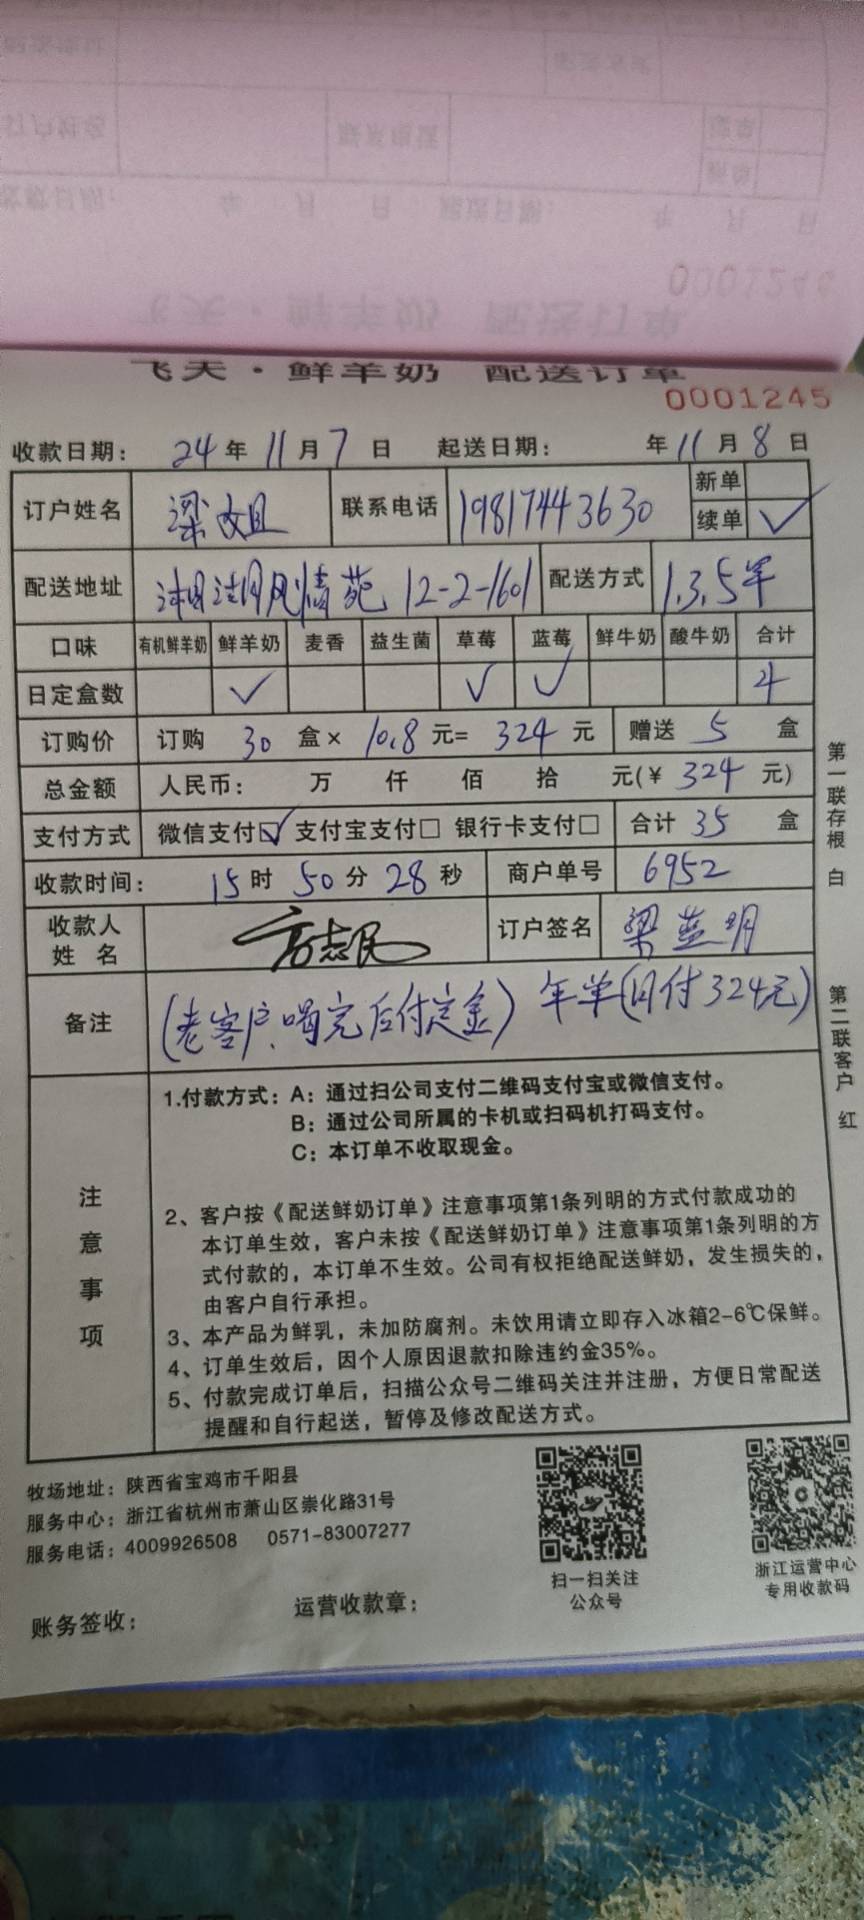 飞天·鲜羊奶 配送订单
0001245
收款日期： 24年 11月 7日 起送日期： 年 11月 8日
订户姓名 梁姐 联系电话 19817443630 新单
续单 ✓
配送地址 湘湖风情苑 12-2-1601 配送方式 1.3.5早
口味 有机鲜羊奶 鲜羊奶 麦香 益生菌 草莓 蓝莓 鲜牛奶 酸牛奶 合计
日定盒数 ✓ ✓ ✓ 4
订购价 订购 30 盒× 10.8 元= 324 元 赠送 5 盒
总金额 人民币： 万 仟 佰 拾 元(¥ 324 元)
支付方式 微信支付☑ 支付宝支付□ 银行卡支付□ 合计 35 盒
收款时间： 15时 50分 28秒 商户单号 6952
收款人姓名 方志民 订户签名 梁 明
备注 (老客户、喝完后付定金) 年单(月付324元)
注意事项
1.付款方式：A：通过扫公司支付二维码支付宝或微信支付。
B：通过公司所属的卡机或扫码机打码支付。
C：本订单不收取现金。
2、客户按《配送鲜奶订单》注意事项第1条列明的方式付款成功的
本订单生效，客户未按《配送鲜奶订单》注意事项第1条列明的方
式付款的，本订单不生效。公司有权拒绝配送鲜奶，发生损失的，
由客户自行承担。
3、本产品为鲜乳，未加防腐剂。未饮用请立即存入冰箱2-6℃保鲜。
4、订单生效后，因个人原因退款扣除违约金35%。
5、付款完成订单后，扫描公众号二维码关注并注册，方便日常配送
提醒和自行起送，暂停及修改配送方式。
第一联存根 白
第二联客户 红
牧场地址：陕西省宝鸡市千阳县
服务中心：浙江省杭州市萧山区崇化路31号
服务电话：4009926508 0571-83007277
扫一扫关注
公众号
浙江运营中心
专用收款码
账务签收： 运营收款章：